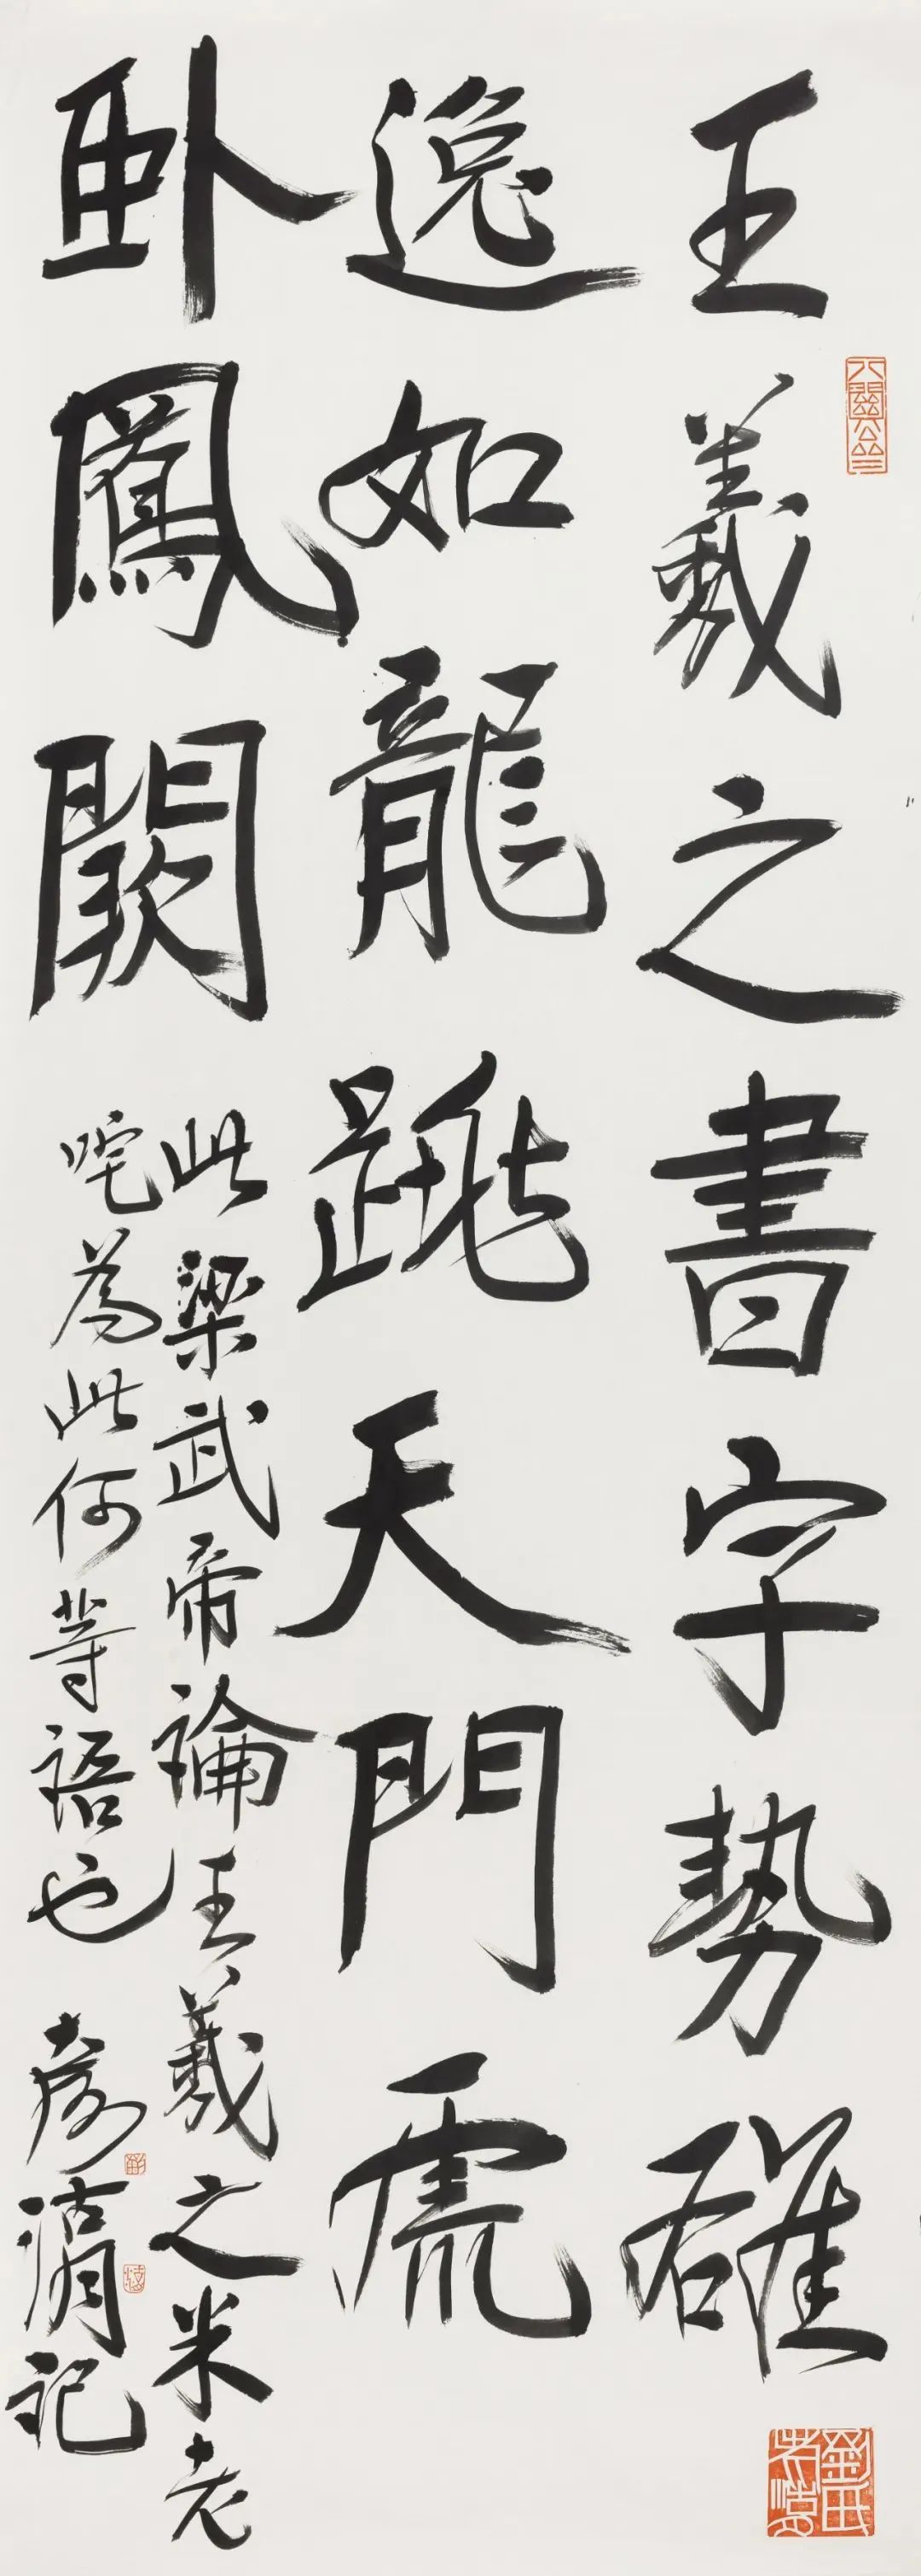 王羲之書字勢雄
逸如龍跳天門虎
卧鳳闕
此梁武帝論王羲之米老
咤為此何等語也 彥湖記